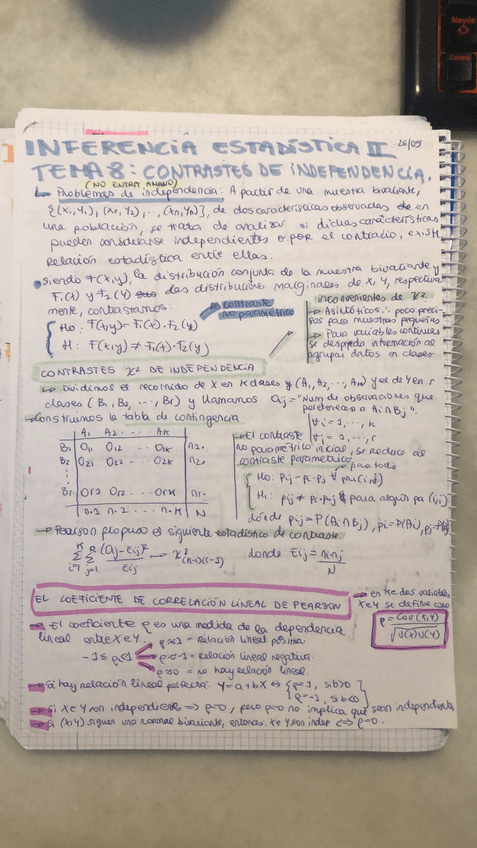 26/05
INFERENCIA ESTADÍSTICA II
TEMA 8: CONTRASTES DE INDEPENDENCIA.
(NO ENTRA ANOVA)
Problemas de independencia: A partir de una muestra bivariante,
{(X1,Y1), (X2,Y2), ..., (Xn,Yn)}, de dos características observadas de en
una población, se trata de analizar si dichas características
pueden considerarse independientes o por el contrario, existe
relación estadística entre ellas.
• siendo F(x,y), la distribución conjunta de la muestra bivariante y
F1(x) y F2(y) las distribuciones marginales de X, Y, respectiva
mente, contrastamos:
→ contraste
no paramétrico
{ H0: F(x,y) = F1(x)·F2(y)
H1: F(x,y) ≠ F1(x)·F2(y)
inconvenientes de χ2
→ Asintóticos ∴ poco preci
sos para muestras pequeñas
→ Para variables continuas
se desprecia información al
agrupar datos en clases
CONTRASTES χ2 DE INDEPENDENCIA
↳ Dividimos el recorrido de X en k clases y (A1, A2, ..., Ak) y el de Y en r
clases (B1, B2, ..., Br) y llamamos Oij = "Num de observaciones que
pertenecen a Ai ∩ Bj".
∀i = 1, ..., k
∀j = 1, ..., r
→ Construimos la tabla de contingencia
A1 A2 ... Ak
B1 O11 O12 ... O1k n1.
B2 O21 O22 ... O2k n2.
Br Or1 Or2 ... Ork nr.
n.1 n.2 ... n.k N
→ El contraste
no paramétrico inicial, se reduce al
contraste paramétrico
{ H0: pij = pi·pj ∀ para todo (i,j)
H1: pij ≠ pi·pj para algún par (i,j)
dónde pij = P(Ai ∩ Bj), pi = P(Ai), pj = P(Bj)
→ Pearson propuso el siguiente estadístico de contraste:
∑∑ (Oij - Eij)2 / Eij → χ2 donde Eij = ni nj / N
EL COEFICIENTE DE CORRELACIÓN LINEAL DE PEARSON
→ entre dos variables
X e Y se define como
ρ = COV(X,Y) / √V(X)V(Y)
→ El coeficiente ρ es una medida de la dependencia
lineal entre X e Y.
-1 ≤ ρ ≤ 1
ρ≈1 = Relación lineal positiva
ρ≈-1 = Relación lineal negativa.
ρ≈0 = no hay relación lineal.
→ Si hay relación lineal perfecta: Y = a + bX ⇔ { ρ=1, si b>0
ρ=-1, si b<0
→ Si X e Y son independiente ⇒ ρ=0, pero ρ=0 no implica que sean independientes
→ Si (X,Y) sigue una normal bivariante, entonces. X e Y son indep ⇔ ρ=0.